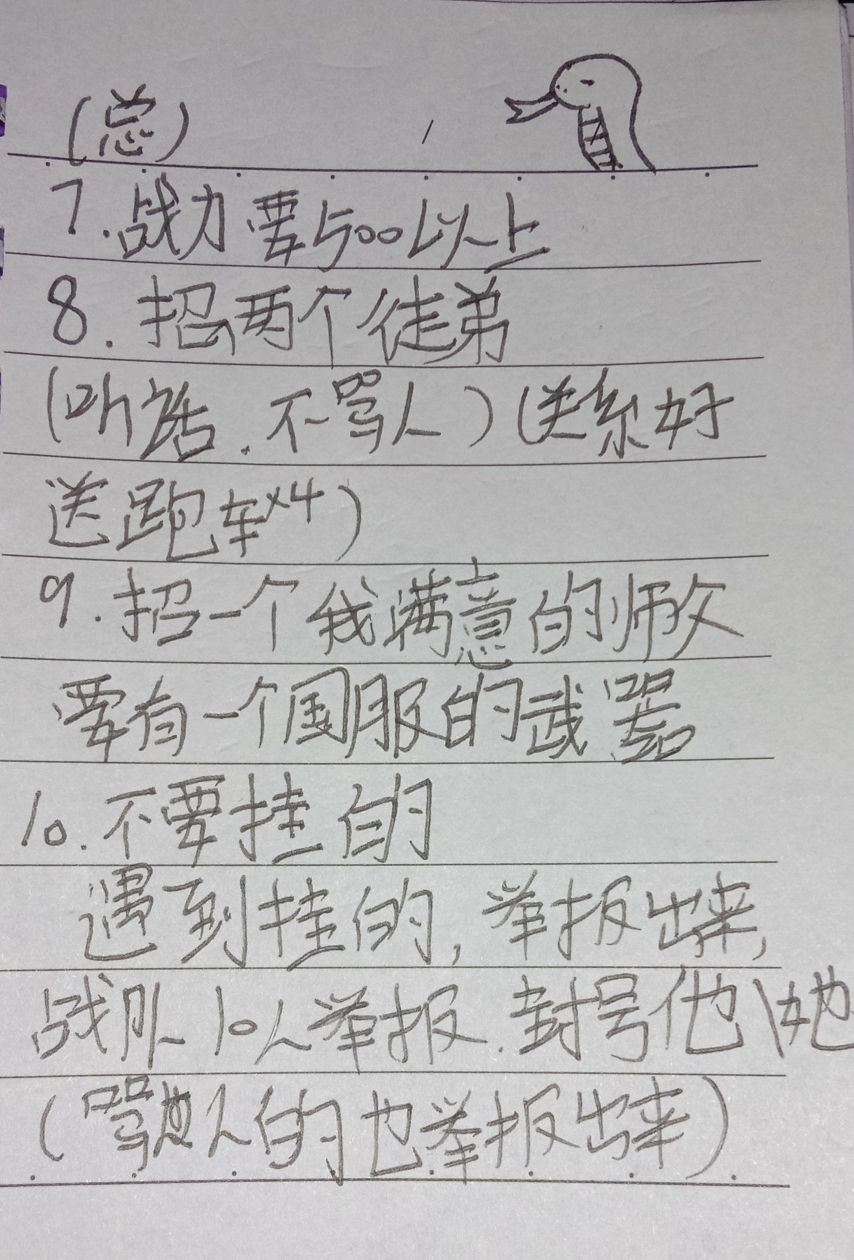 (总)
7.战力要500以上
8.招两个徒弟
(听话.不骂人)(关系好
送跑车×4)
9.招一个我满意的师父
要有一个国服的武器
10.不要挂的
遇到挂的,举报出来,
战队10人举报.封号他\她
(骂人的也举报出来)